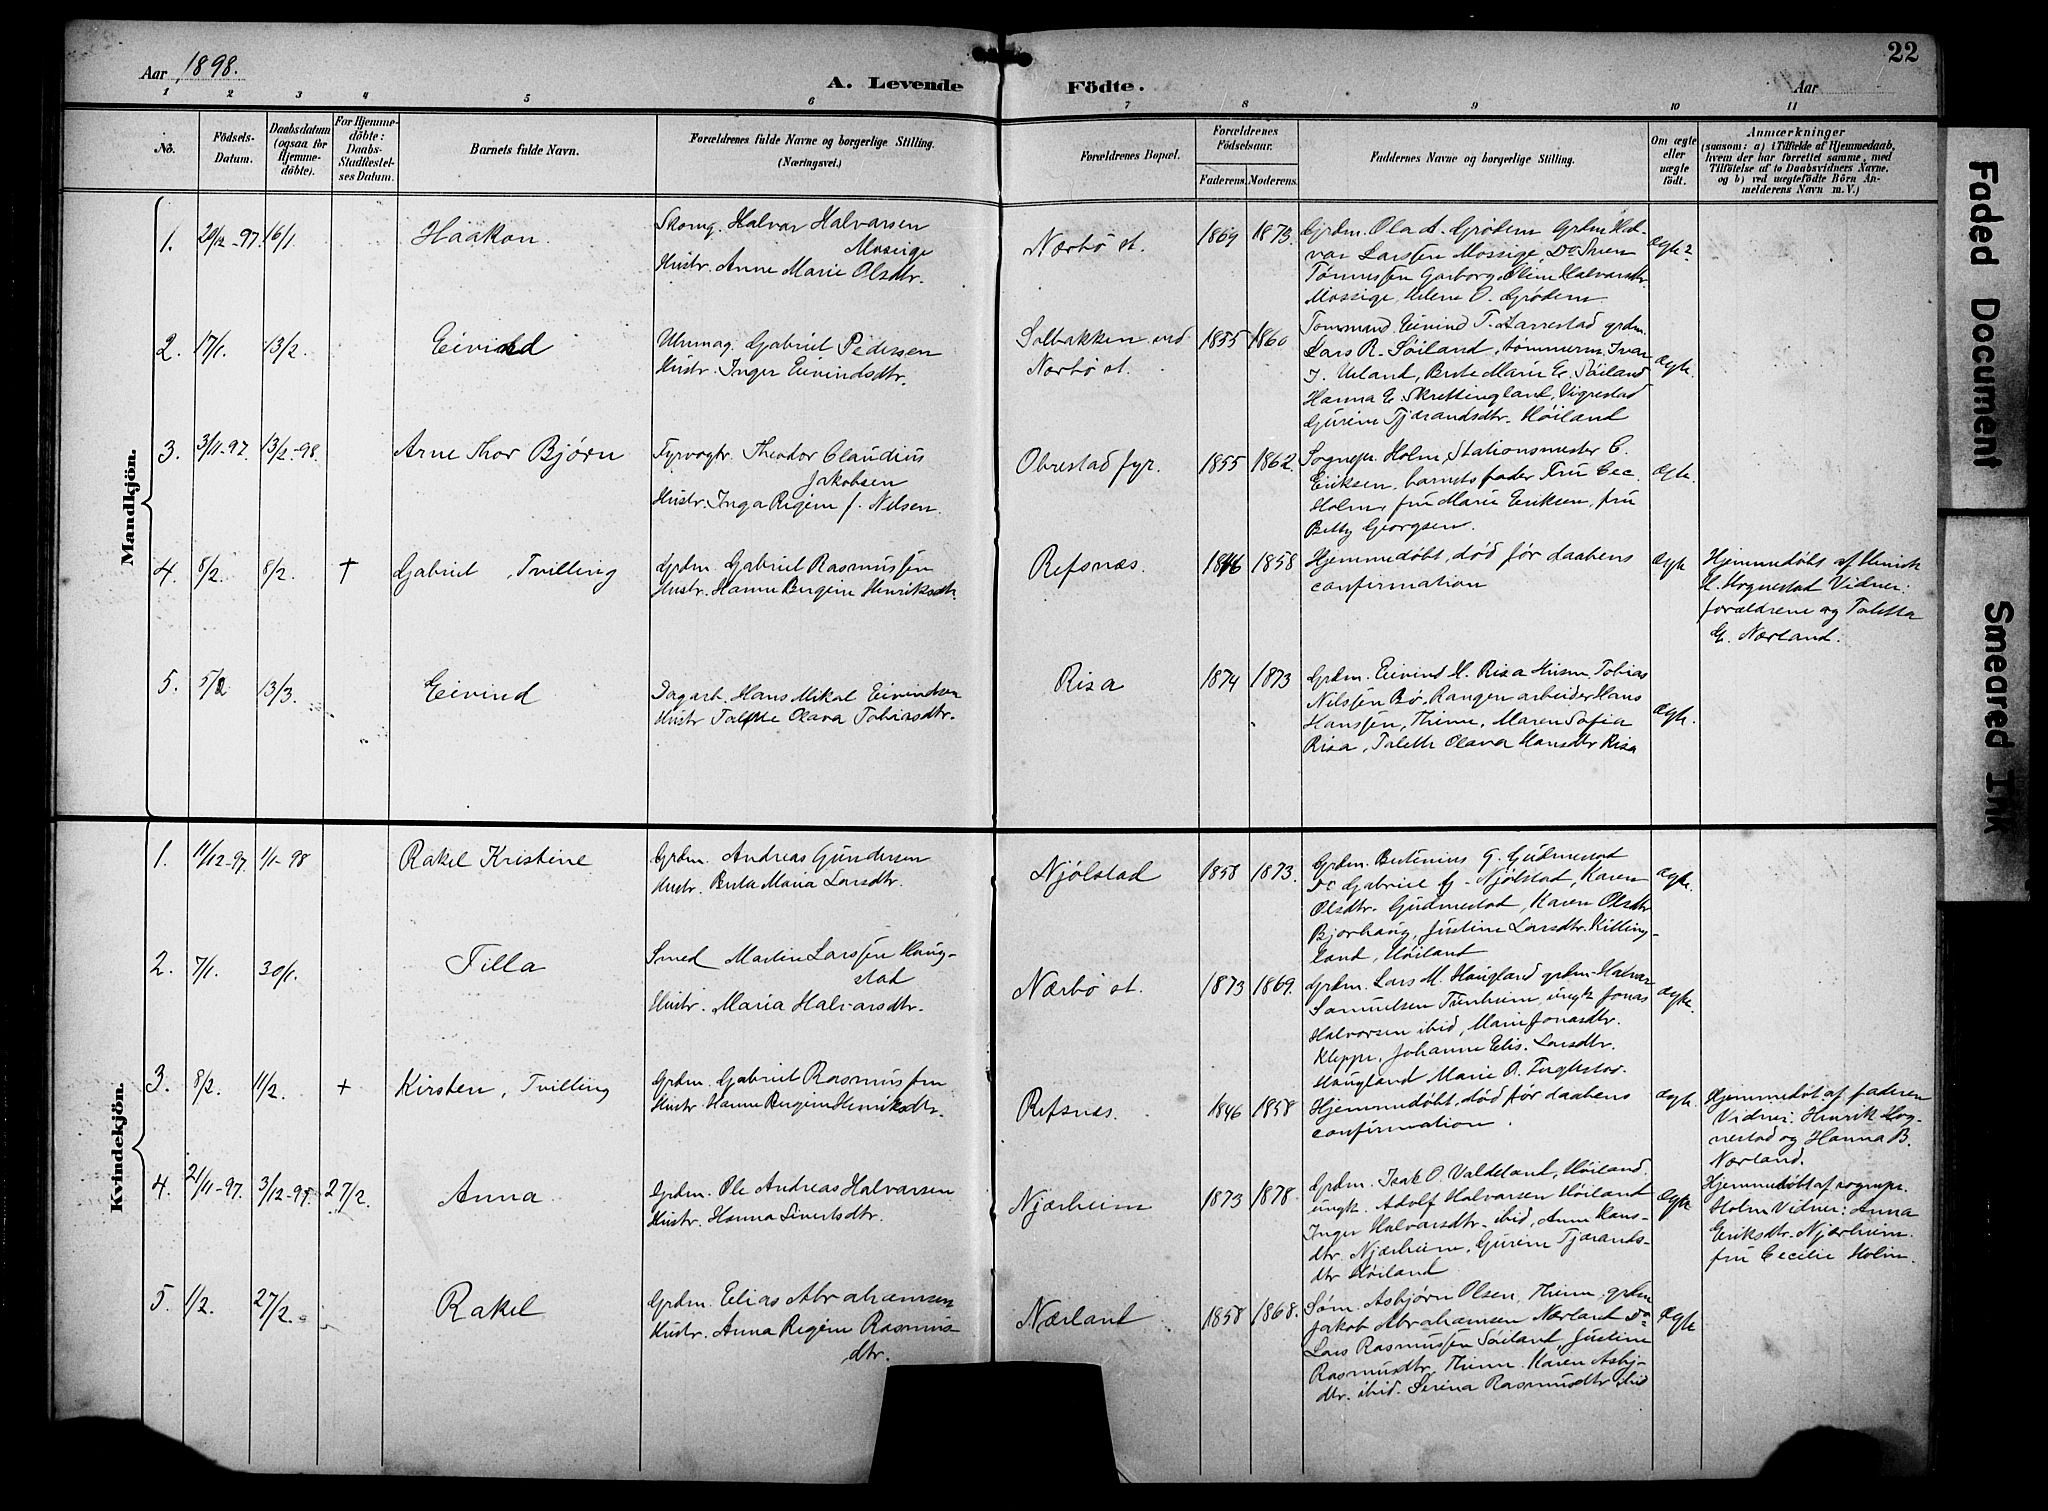 Aar 1898.
A. Levende Födte.
Aar
22
1 2 3 4 5 6 7 8 9 10 11
No.
Födsels-Datum.
Daabsdatum (ogsaa for Hjemme-döbte).
For Hjemme-döbte: Daabs-Stadfæstel-ses Datum.
Barnets fulde Navn.
Forældrenes fulde Navne og borgerlige Stilling.
(Næringsvei.)
Forældrenes Bopæl.
Forældrenes Födselsaar.
Faderens. Moderens.
Faddernes Navne og borgerlige Stilling.
Om ægte eller uægte födt.
Anmærkninger
(saasom: a) i Tilfælde af Hjemmedaab,
hvem der har forrettet samme, med
Tilföielse af to Daabsvidners Navne.
og b) ved uægtefödte Börn An-
melderens Navn m. V.)
Mandkjön.
1. 20/12-97. 16/1 Haakon.
Skomg. Halvar Halvarsen
Mossige
Hustr. Anne Marie Olsdtr.
Nærbö st. 1869 1873.
Grdm. Ola A. Grödem Grdm Hal-
var Larssen Mossige Do Sven
Tönnessen Garborg, Eline Halvarsdtr.
Mossige, Helene O. Grödem
Ægte
2. 17/1. 13/2. Eivind
Uhrmag. Gabriel Pedersen
Hustr. Inger Eivindsdtr.
Solbakken ved
Nærbö st.
1855 1860
Eivind T. Harrestad grdm.
Lars R. Söiland, tömmerm. Ivar
I. Ueland, Berte Marie E. Söiland
Hanna E. Skrettingland, Vigrestad
Gurine Tjærandsdtr. Höiland
Ægte.
3. 3/11-97. 13/2-98. Arne Thor Bjørn
Fyrvogtr. Theodor Claudius
Jakobsen
Hustr. Inga Regine f. Nilsen.
Obrestad fyr. 1855 1862.
Sognepr. Holm, Stationsmester C.
Eriksen, barnets fader Fru Cec.
Holm, fru Marie Eriksen, fru
Betty Georgsen.
Ægte.
4. 8/2. 8/2. † Gabriel, Tvilling
Grdm. Gabriel Rasmussen
Hustr. Hanne Bergine Henriksdtr.
Refsnæs. 1846 1858
Hjemmedöbt, död för daabens
confirmation
Ægte
Hjemmedöbt af Henrik
H. Hognestad Vidner:
forældrene og Taletta
G. Nærland.
5. 5/2 13/3. Eivind
Dagarb. Hans Mikal Eivindsen
Hustr Talette Olava Tobiasdtr.
Risa 1874 1873
Grdm. Eivind H. Risa Husm. Tobias
Nilssen Bö, Rangerarbeider Hans
Hanssen, Thime, Maren Sofia
Risa, Taleth Olava Hansdtr Risa
Ægte.
Kvindekjön.
1. 11/12-97. 1/1-98 Rakel Kristine
Grdm. Andreas Gundersen
Hustr. Berta Maria Larsdtr.
Njölstad 1858 1873.
Grdm. Bertinius G. Gudmestad
Do Gabriel G. Njölstad, Karen
Olsdtr. Gudmestad, Karen Olsdtr
Bjorhaug, Justine Larsdtr. Kitling-
land, Höiland
ægte.
2. 7/1. 30/1. Tilla
Smed Martin Larssen Haug-
stad
Hustr. Maria Halvarsdtr.
Nærbö st. 1873 1869.
Grdm. Lars M. Haugland grdm. Halvar
Samuelsen Tunheim, ungk Jonas
Halvorsen ibid, Marie Jonasdtr.
Kleppe, Johanne Elis. Larsdtr.
Haugland Marie O.
ægte.
3. 8/2. 11/2. † Kirsten, Tvilling
Grdm. Gabriel Rasmussen
Hustr Hanne Bergine Henriksdtr.
Refsnæs. 1846 1858
Hjemmedöbt, död för daabens
confirmation.
ægte.
Hjemmedöbt af faderen
Vidner: Henrik Hog-
nestad og Hanna B.
Nærland.
4. 21/11-97. 3/12-97 27/2. Anna
Grdm. Ole Andreas Halvarsen
Hustr. Hanna Sivertsdtr.
Njærheim 1873 1878.
Grdm. Isak O. Valdeland, Höiland.
ungk. Adolf Halvarsen Höiland
Inger Halvarsdtr. ibid, Anne Hans-
dtr. Njærheim, Gurine Tjærands-
dtr Höiland
Ægte
Hjemmedöbt af sognepr.
Holm Vidner: Anna
Eriksdtr. Njærheim.
fru Cecilie Holm.
5. 1/2. 27/2. Rakel
Grdm. Elias Abrahamsen
Hustr. Anna Regine Rasmus-
dtr.
Nærland 1858 1868.
Asbjörn Olsen, Thime, grdm
Jakob Abrahamsen Nærland Do
Lars Rasmussen Söiland, Justine
Rasmusdtr, Thime. Karen Asbj-
dtr. ibid. Serina Rasmusdtr ibid
Ægte
Faded Document
Smeared Ink